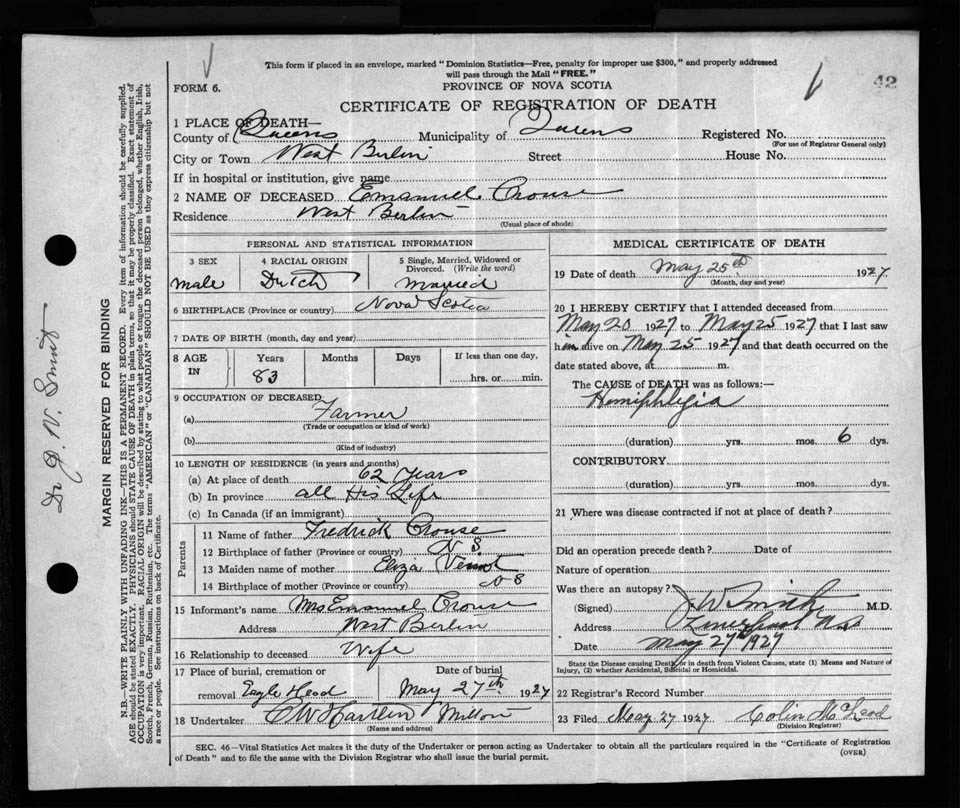 This form if placed in an envelope, marked "Dominion Statistics—Free, penalty for improper use $300," and properly addressed
will pass through the Mail "FREE."
FORM 6.
PROVINCE OF NOVA SCOTIA
42
CERTIFICATE OF REGISTRATION OF DEATH
1 PLACE OF DEATH—
County of Queens Municipality of Queens Registered No.
(For use of Registrar General only)
City or Town West Berlin Street House No.
If in hospital or institution, give name
2 NAME OF DECEASED Emanuel Crouse
Residence West Berlin
(Usual place of abode)
PERSONAL AND STATISTICAL INFORMATION
3 SEX 4 RACIAL ORIGIN 5 Single, Married, Widowed or
Divorced. (Write the word)
male Dutch Married
6 BIRTHPLACE (Province or country) Nova Scotia
7 DATE OF BIRTH (month, day and year)
8 AGE IN Years Months Days If less than one day,
83 hrs. or min.
9 OCCUPATION OF DECEASED
(a) Farmer
(Trade or occupation or kind of work)
(b)
(Kind of industry)
10 LENGTH OF RESIDENCE (in years and months)
(a) At place of death 62 Years
(b) In province all His Life
(c) In Canada (if an immigrant)
Parents
11 Name of father Fredrick Crouse
12 Birthplace of father (Province or country) N S
13 Maiden name of mother Eliza
14 Birthplace of mother (Province or country) N S
15 Informant's name Mrs Emanuel Crouse
Address West Berlin
16 Relationship to deceased Wife
17 Place of burial, cremation or Date of burial
removal Eagle Head May 27th 1927
18 Undertaker Milton
(Name and address)
MEDICAL CERTIFICATE OF DEATH
19 Date of death May 25th 1927
(Month, day and year)
20 I HEREBY CERTIFY that I attended deceased from
May 20 1927 to May 25 1927 that I last saw
him alive on May 25 1927 and that death occurred on the
date stated above, at m.
The CAUSE of DEATH was as follows:—
Hemiphlegia
(duration) yrs. mos. 6 dys.
CONTRIBUTORY
(duration) yrs. mos. dys.
21 Where was disease contracted if not at place of death?
Did an operation precede death? Date of
Nature of operation
Was there an autopsy?
(Signed) J W Smith M.D.
Address Liverpool N.S.
Date May 27th 1927
State the Disease causing Death, or in death from Violent Causes, state (1) Means and Nature of
Injury, (2) whether Accidental, Suicidal or Homicidal.
22 Registrar's Record Number
23 Filed May 27 1927 Colin McLeod
(Division Registrar)
SEC. 46—Vital Statistics Act makes it the duty of the Undertaker or person acting as Undertaker to obtain all the particulars required in the "Certificate of Registration
of Death" and to file the same with the Division Registrar who shall issue the burial permit. (OVER)
MARGIN RESERVED FOR BINDING
N.B.—WRITE PLAINLY WITH UNFADING INK—THIS IS A PERMANENT RECORD. Every item of information should be carefully supplied.
AGE should be stated EXACTLY. PHYSICIANS should STATE CAUSE OF DEATH in plain terms, so that it may be properly classified. Exact statement of
OCCUPATION is very important. RACIAL ORIGIN will be described by stating to what people or tongue the deceased person belonged, whether English, Irish,
Scotch, French, German, Russian, Ruthenian, etc. The terms "AMERICAN" or "CANADIAN" SHOULD NOT BE USED as they express citizenship but not
a race or people. See instructions on back of Certificate.